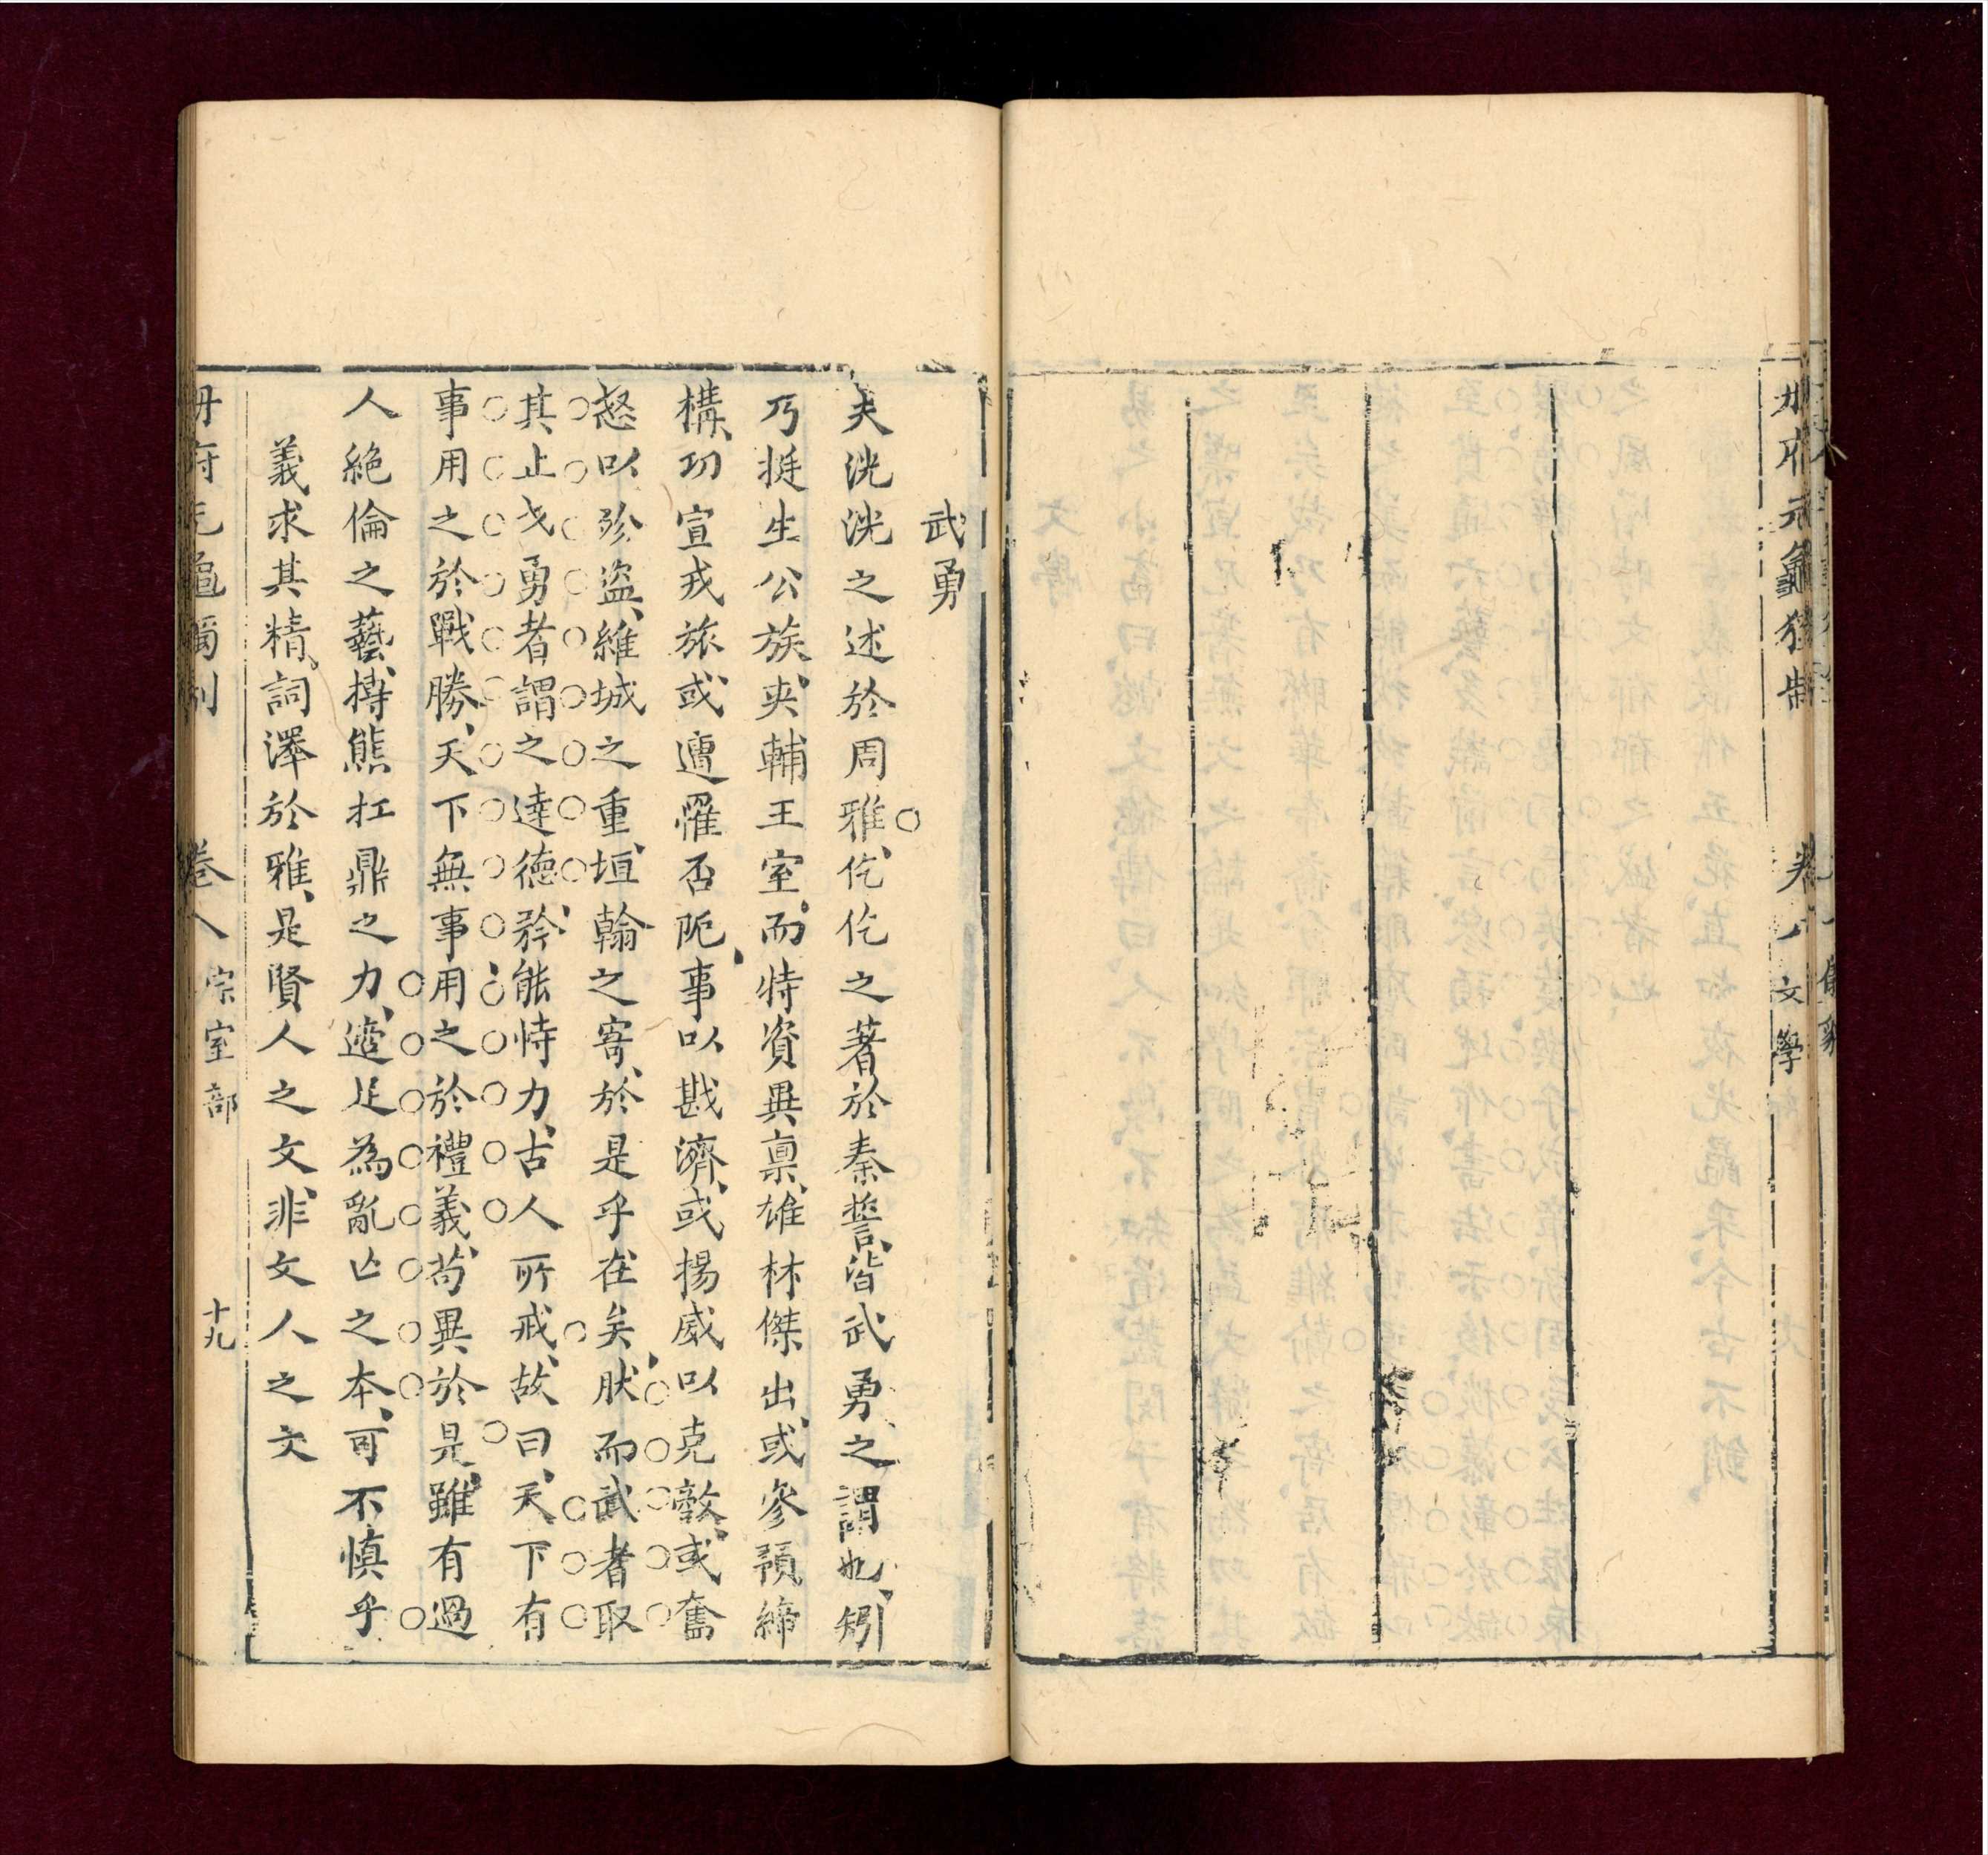 冊府元龜獨制　卷八　文學
武勇
夫洸洸之述於周雅、仡仡之著於秦誓、皆武勇、之謂也、矧
乃挺生公族、夾輔王室、而特資異禀、雄材傑出、或參預締
構、功宣戎旅、或遭罹否阨、事以戡濟、或揚威以克敵、或奮
怒以殄盗、維城之重、垣翰之寄、於是乎在矣、肰而武者取
其止戈勇者謂之達德、矜能恃力、古人所戒、故曰、天下有
事用之於戰勝、天下無事用之於禮義、苟異於是、雖有過
人絶倫之藝、搏熊扛鼎之力、適足為亂亡之本、可不慎乎
義求其精、詞澤於雅、是賢人之文、非文人之文
冊府元龜獨制　卷八　宗室部　十九